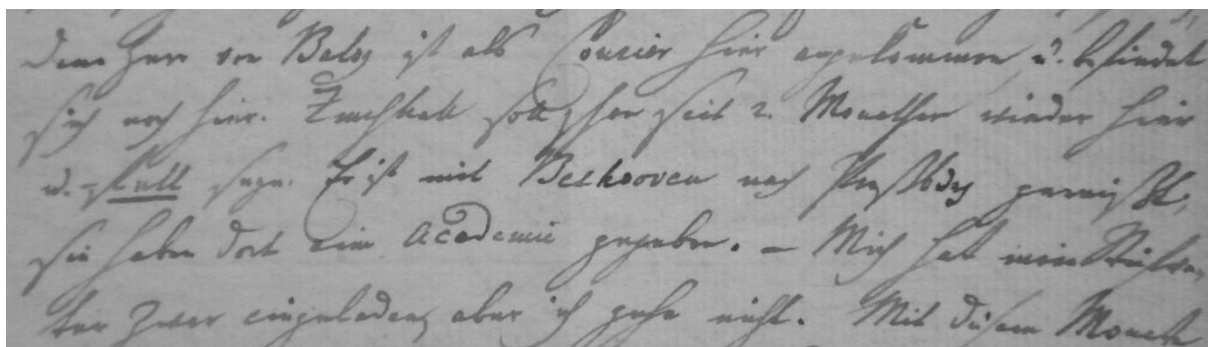 Dem Herr von Balog ist als Courier hier angekommen u. befindet
sich noch hier. soll schon seit 2. Monathen wieder hier
u. still seyn. Er ist mit Bethooven nach Preßburg gereißt;
sie haben dort eine Academie gegeben. – Mich hat mein
ter zwar eingeladen, aber ich gehe nicht. Mit diesem Monath